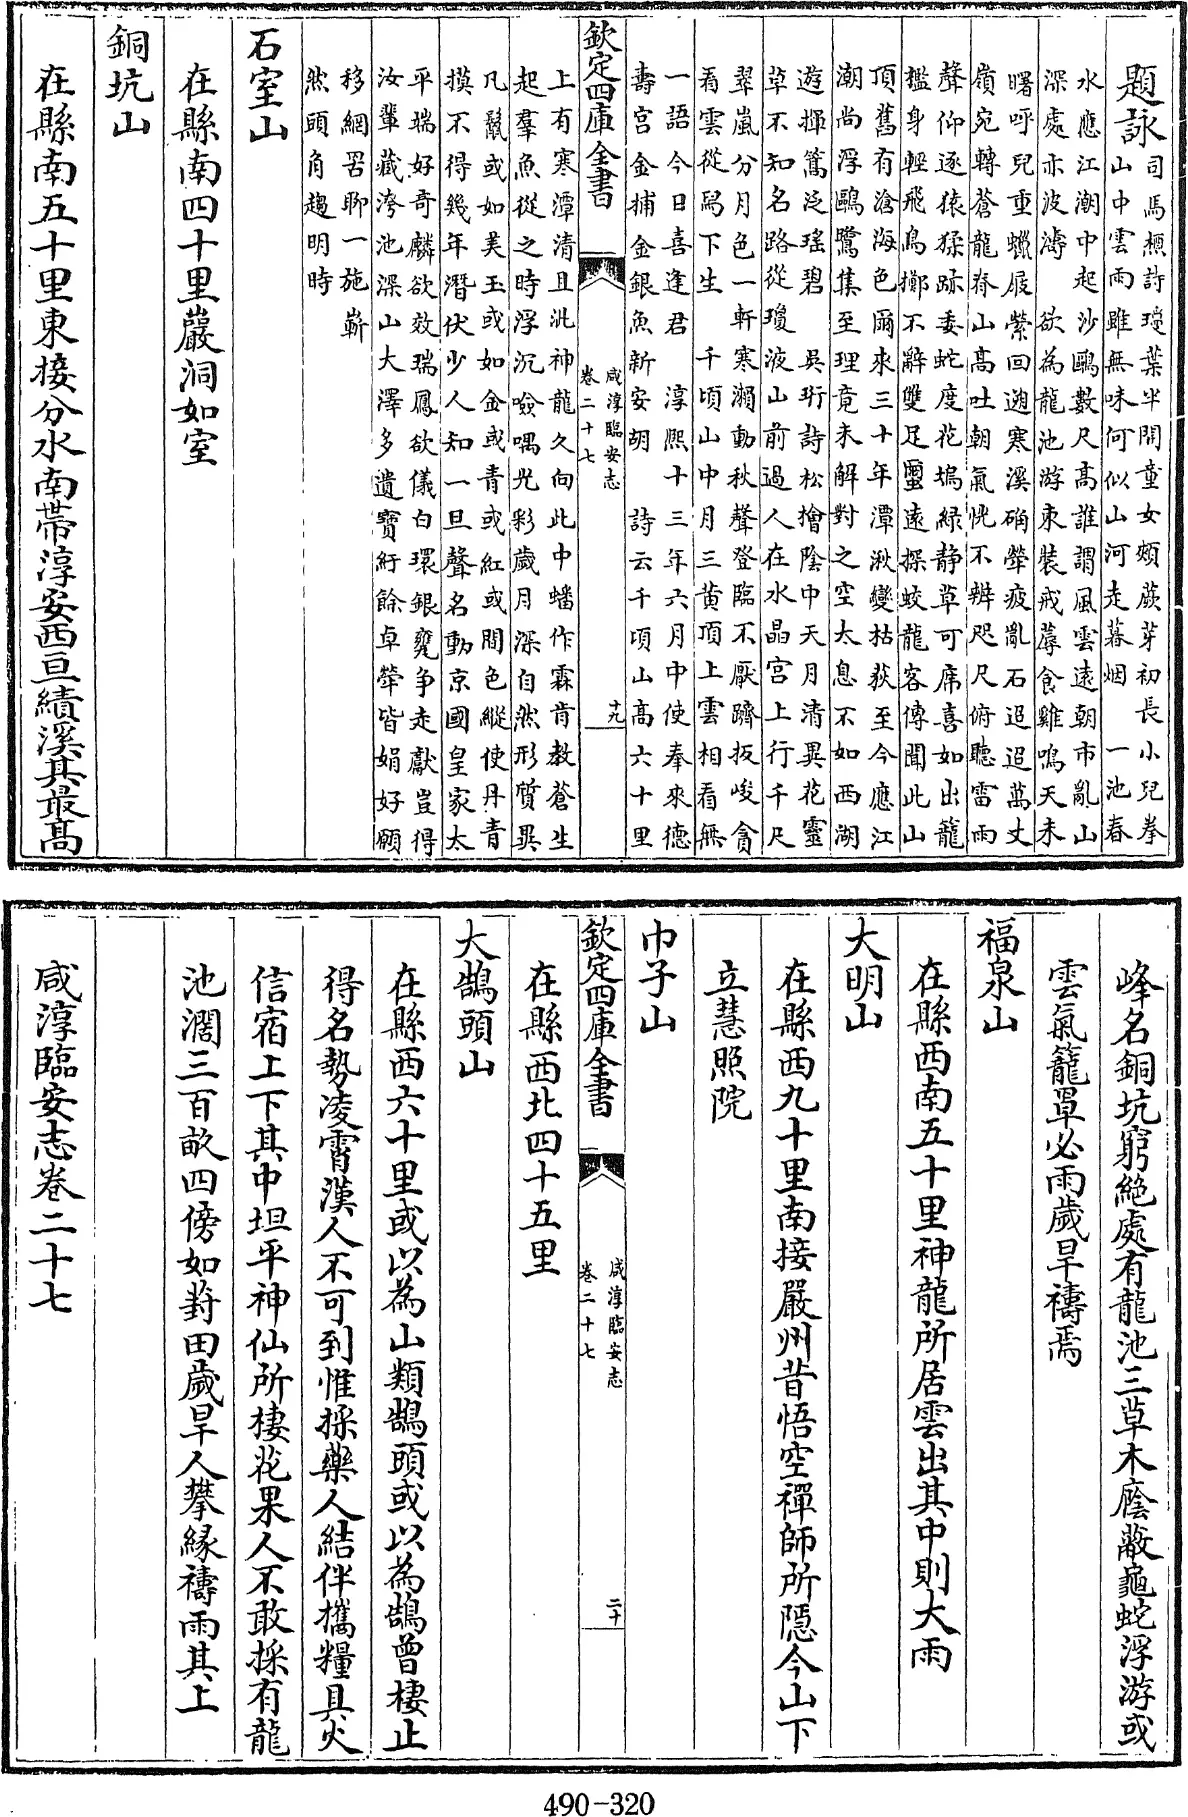 題詠司馬槱詩瓊葉半開童女頰蕨芽初長小兒拳
山中雲雨雖無味何似山河走暮烟 一池春
水應江潮中起沙鷗數尺髙誰謂風雲遠朝市亂山
深處亦波濤 欲為龍池游束裝戒蓐食雞鳴天未
曙呼兒重蠟屐縈回遡寒溪确犖疲亂石迢迢萬丈
嶺宛轉蒼龍脊山髙吐朝氣恍不辨咫尺俯聽雷雨
聲仰逐猿猱跡委蛇度花塢緑静草可席喜如出籠
檻身輕飛鳥擲不辭雙足遠探蛟龍客傳聞此山
頂舊有滄海色爾來三十年潭湫變枯荻至今應江
潮尚浮鷗鷺集至理竟未解對之空太息不如西湖
遊撑篙泛瑤碧 吳珩詩松檜陰中天月清異花靈
草不知名路從瓊液山前過人在水晶宫上行千尺
翠嵐分月色一軒寒溜動秋聲登臨不厭躋扳峻貪
看雲從舄下生 千頃山中月三黄頂上雲相看無
一語今日喜逢君 淳熈十三年六月中使奉來德
壽宫金捕金銀魚新安胡 詩云千頃山髙六十里
欽定四庫全書
咸淳臨安志
卷二十七
十九
上有寒潭清且泚神龍久向此中蟠作霖肯教蒼生
起羣魚從之時浮沉噞喁光彩歲月深自然形質異
凡鬛或如美玉或如金或青或紅或間色縱使丹青
摸不得幾年潛伏少人知一旦聲名動京國皇家太
平瑞好奇麟欲效瑞鳳欲儀白環銀甕争走獻豈得
汝輩藏洿池深山大澤多遺寶紆餘卓犖皆娟好願
移網罟聊一施嶄
然頭角趨明時
石室山
在縣南四十里巖洞如室
銅坑山
在縣南五十里東接分水南帶淳安西亘績溪其最髙
峰名銅坑窮絶處有龍池三草木蔭蔽龜蛇浮游或
雲氣籠罩必雨歲旱禱焉
福泉山
在縣西南五十里神龍所居雲出其中則大雨
大明山
在縣西九十里南接嚴州昔悟空禪師所隱今山下
立慧照院
巾子山
欽定四庫全書
咸淳臨安志
卷二十七
二十
在縣西北四十五里
大鵠頭山
在縣西六十里或以為山類鵠頭或以為鵠曾棲止
得名勢凌霄漢人不可到惟採藥人結伴攜糧具火
信宿上下其中坦平神仙所棲花果人不敢採有龍
池濶三百畝四傍如葑田歲旱人攀縁禱雨其上
咸淳臨安志卷二十七
490-320